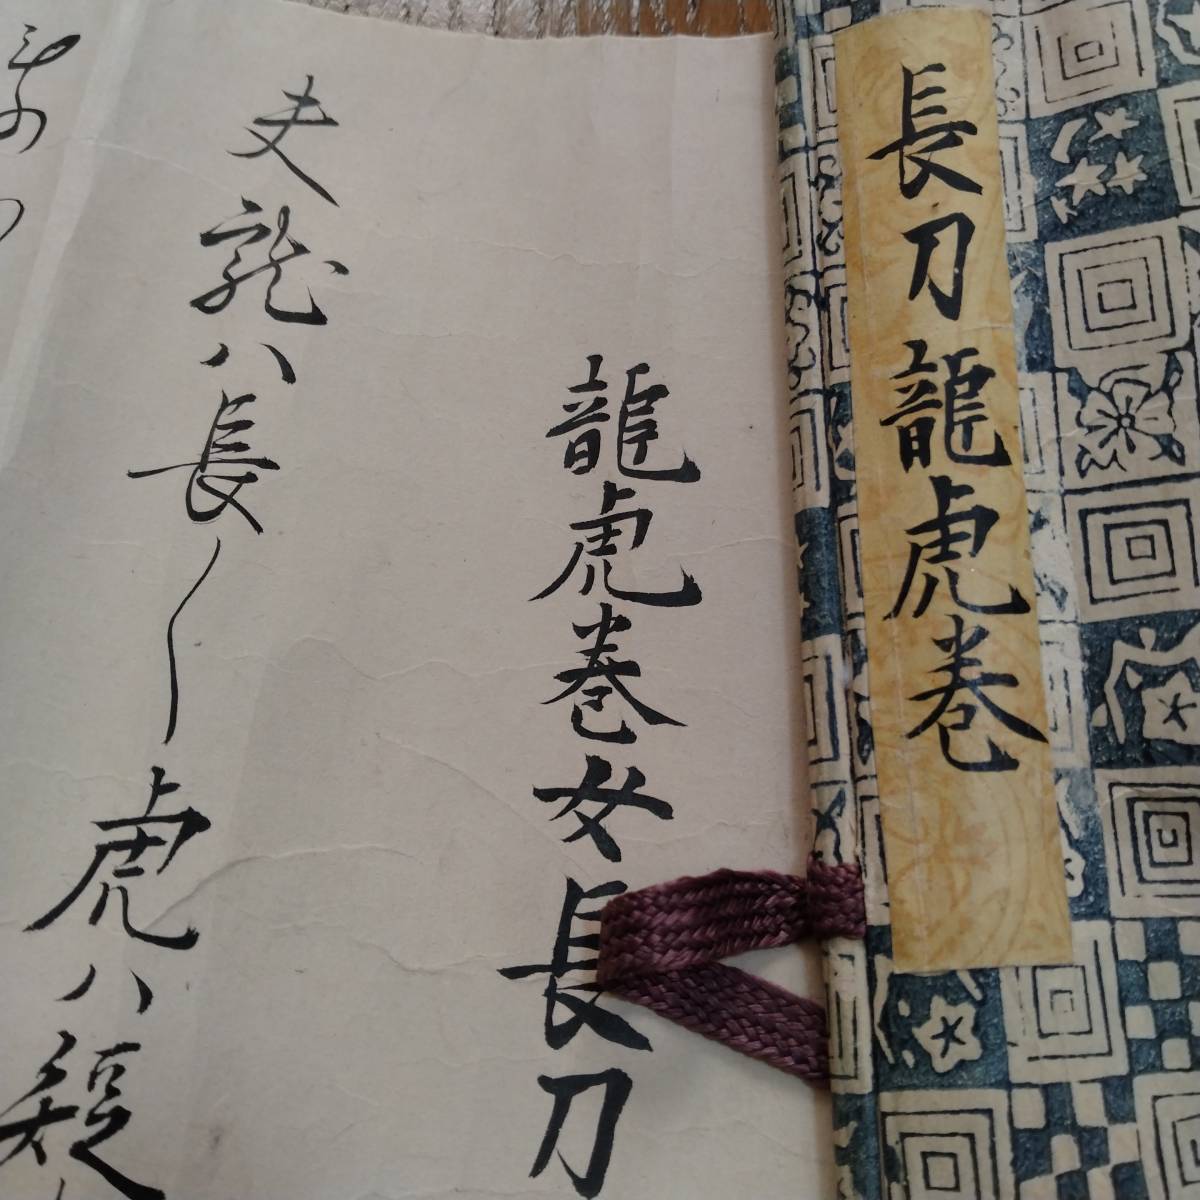 長刀龍虎巻
龍虎巻女長刀
夫龍ハ長〳〵虎ハ短